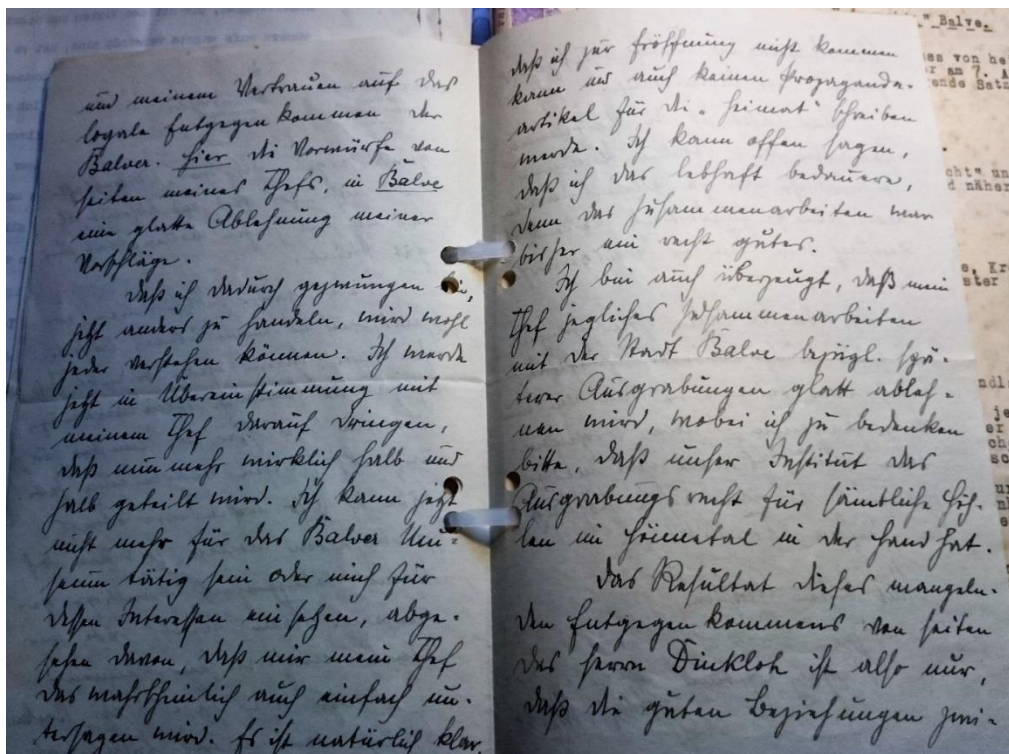 und meinem Vertrauen auf das
loyale Entgegenkommen der
Balver. Hier die Vorwürfe von
seiten meines Chefs, in Balve
eine glatte Ablehnung meiner
Vorschläge.
Daß ich dadurch gezwungen
jetzt anders zu handeln, wird wohl
jeder verstehen können. Ich werde
jetzt in Übereinstimmung mit
meinem Chef darauf dringen,
daß nunmehr wirklich halb und
halb geteilt wird. Ich kann jetzt
nicht mehr für das Balver Mu-
seum tätig sein oder mich für
dessen Interessen einsetzen, abge-
sehen davon, daß mir mein Chef
das wahrscheinlich auch einfach un-
tersagen wird. Es ist natürlich klar,
daß ich zur Eröffnung nicht kommen
kann und auch keinen Propaganda-
artikel für die "Heimat" schreiben
werde. Ich kann offen sagen,
daß ich das lebhaft bedauere,
denn das Zusammenarbeiten war
bisher ein recht gutes.
Ich bin auch überzeugt, daß mein
Chef jegliches Zusammenarbeiten
mit der Stadt Balve bezügl. spä-
terer Ausgrabungen glatt ableh-
nen wird, wobei ich zu bedenken
bitte, daß unser Institut das
Ausgrabungsrecht für sämtliche Höh-
len im Hönnetal in der Hand hat.
Das Resultat dieses mangeln-
den Entgegenkommens von seiten
des Herrn Dinkloh ist also nur,
daß die guten Beziehungen zwi-
" Balve.
es von he
r am 7. A
ende Satz
cht" un
d näher
e, Kre
ster